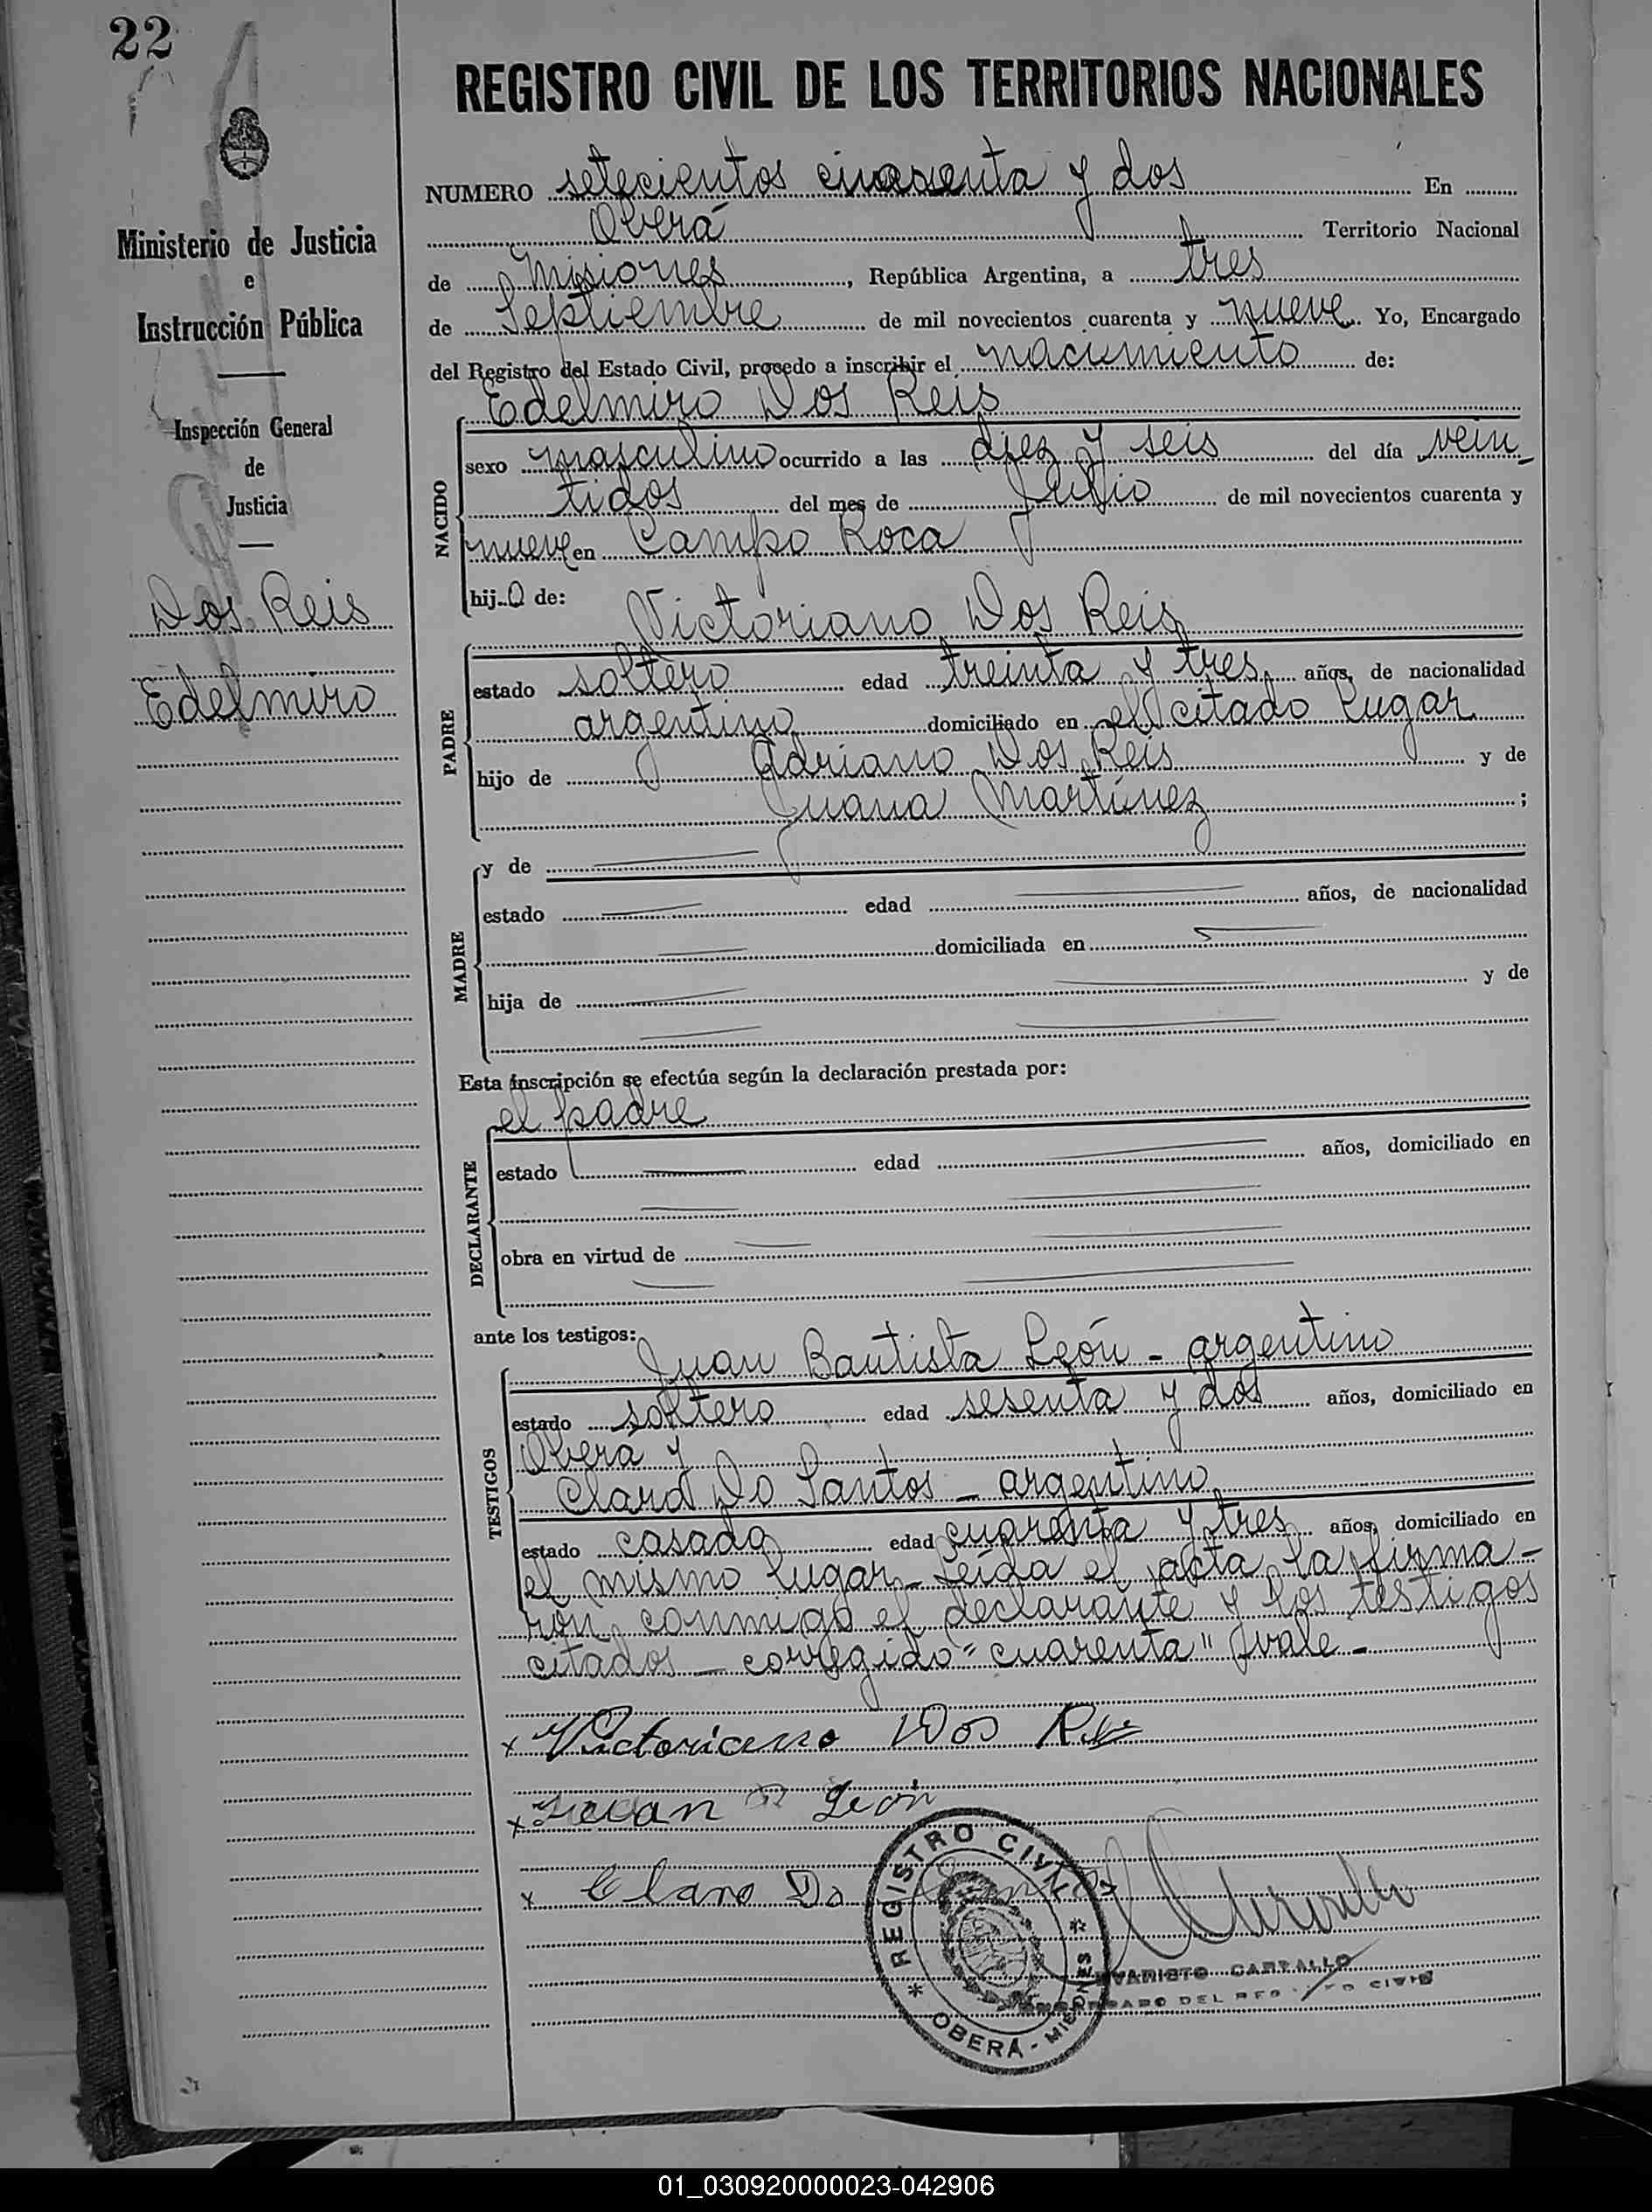 22
REGISTRO CIVIL DE LOS TERRITORIOS NACIONALES
Ministerio de Justicia
e
Instrucción Pública
Inspección General
de
Justicia
Dos Reis
Edelmiro
NUMERO setecientos cuarenta y dos En
Oberá Territorio Nacional
de Misiones, República Argentina, a tres
de Septiembre de mil novecientos cuarenta y nueve Yo, Encargado
del Registro del Estado Civil, procedo a inscribir el nacimiento de:
Edelmiro Dos Reis
NACIDO
sexo masculino ocurrido a las diez y seis del día vein
tidos del mes de Julio de mil novecientos cuarenta y
nueve en Campo Roca
hijo de:
Victoriano Dos Reis
PADRE
estado soltero edad treinta y tres años, de nacionalidad
argentino domiciliado en el citado lugar
hijo de Adriano Dos Reis y de
Juana Martínez ;
MADRE
y de
estado edad años, de nacionalidad
domiciliada en
hija de y de
Esta inscripción se efectúa según la declaración prestada por:
el padre
DECLARANTE
estado edad años, domiciliado en
obra en virtud de
ante los testigos:
Juan Bautista León - argentino
TESTIGOS
estado soltero edad sesenta y dos años, domiciliado en
Oberá y
Claro Do Santos - argentino
estado casado edad cuarenta y tres años, domiciliado en
el mismo lugar - Leída el acta la firma-
rón conmigo el declarante y los testigos
citados - corregido "cuarenta" vale -
x Victoriano Dos Reis
x Juan B León
x Claro Do
REGISTRO CIVIL
OBERÁ - MISIONES
EVARISTO CARBALLO
ENCARGADO DEL REGISTRO CIVIL
01_030920000023-042906